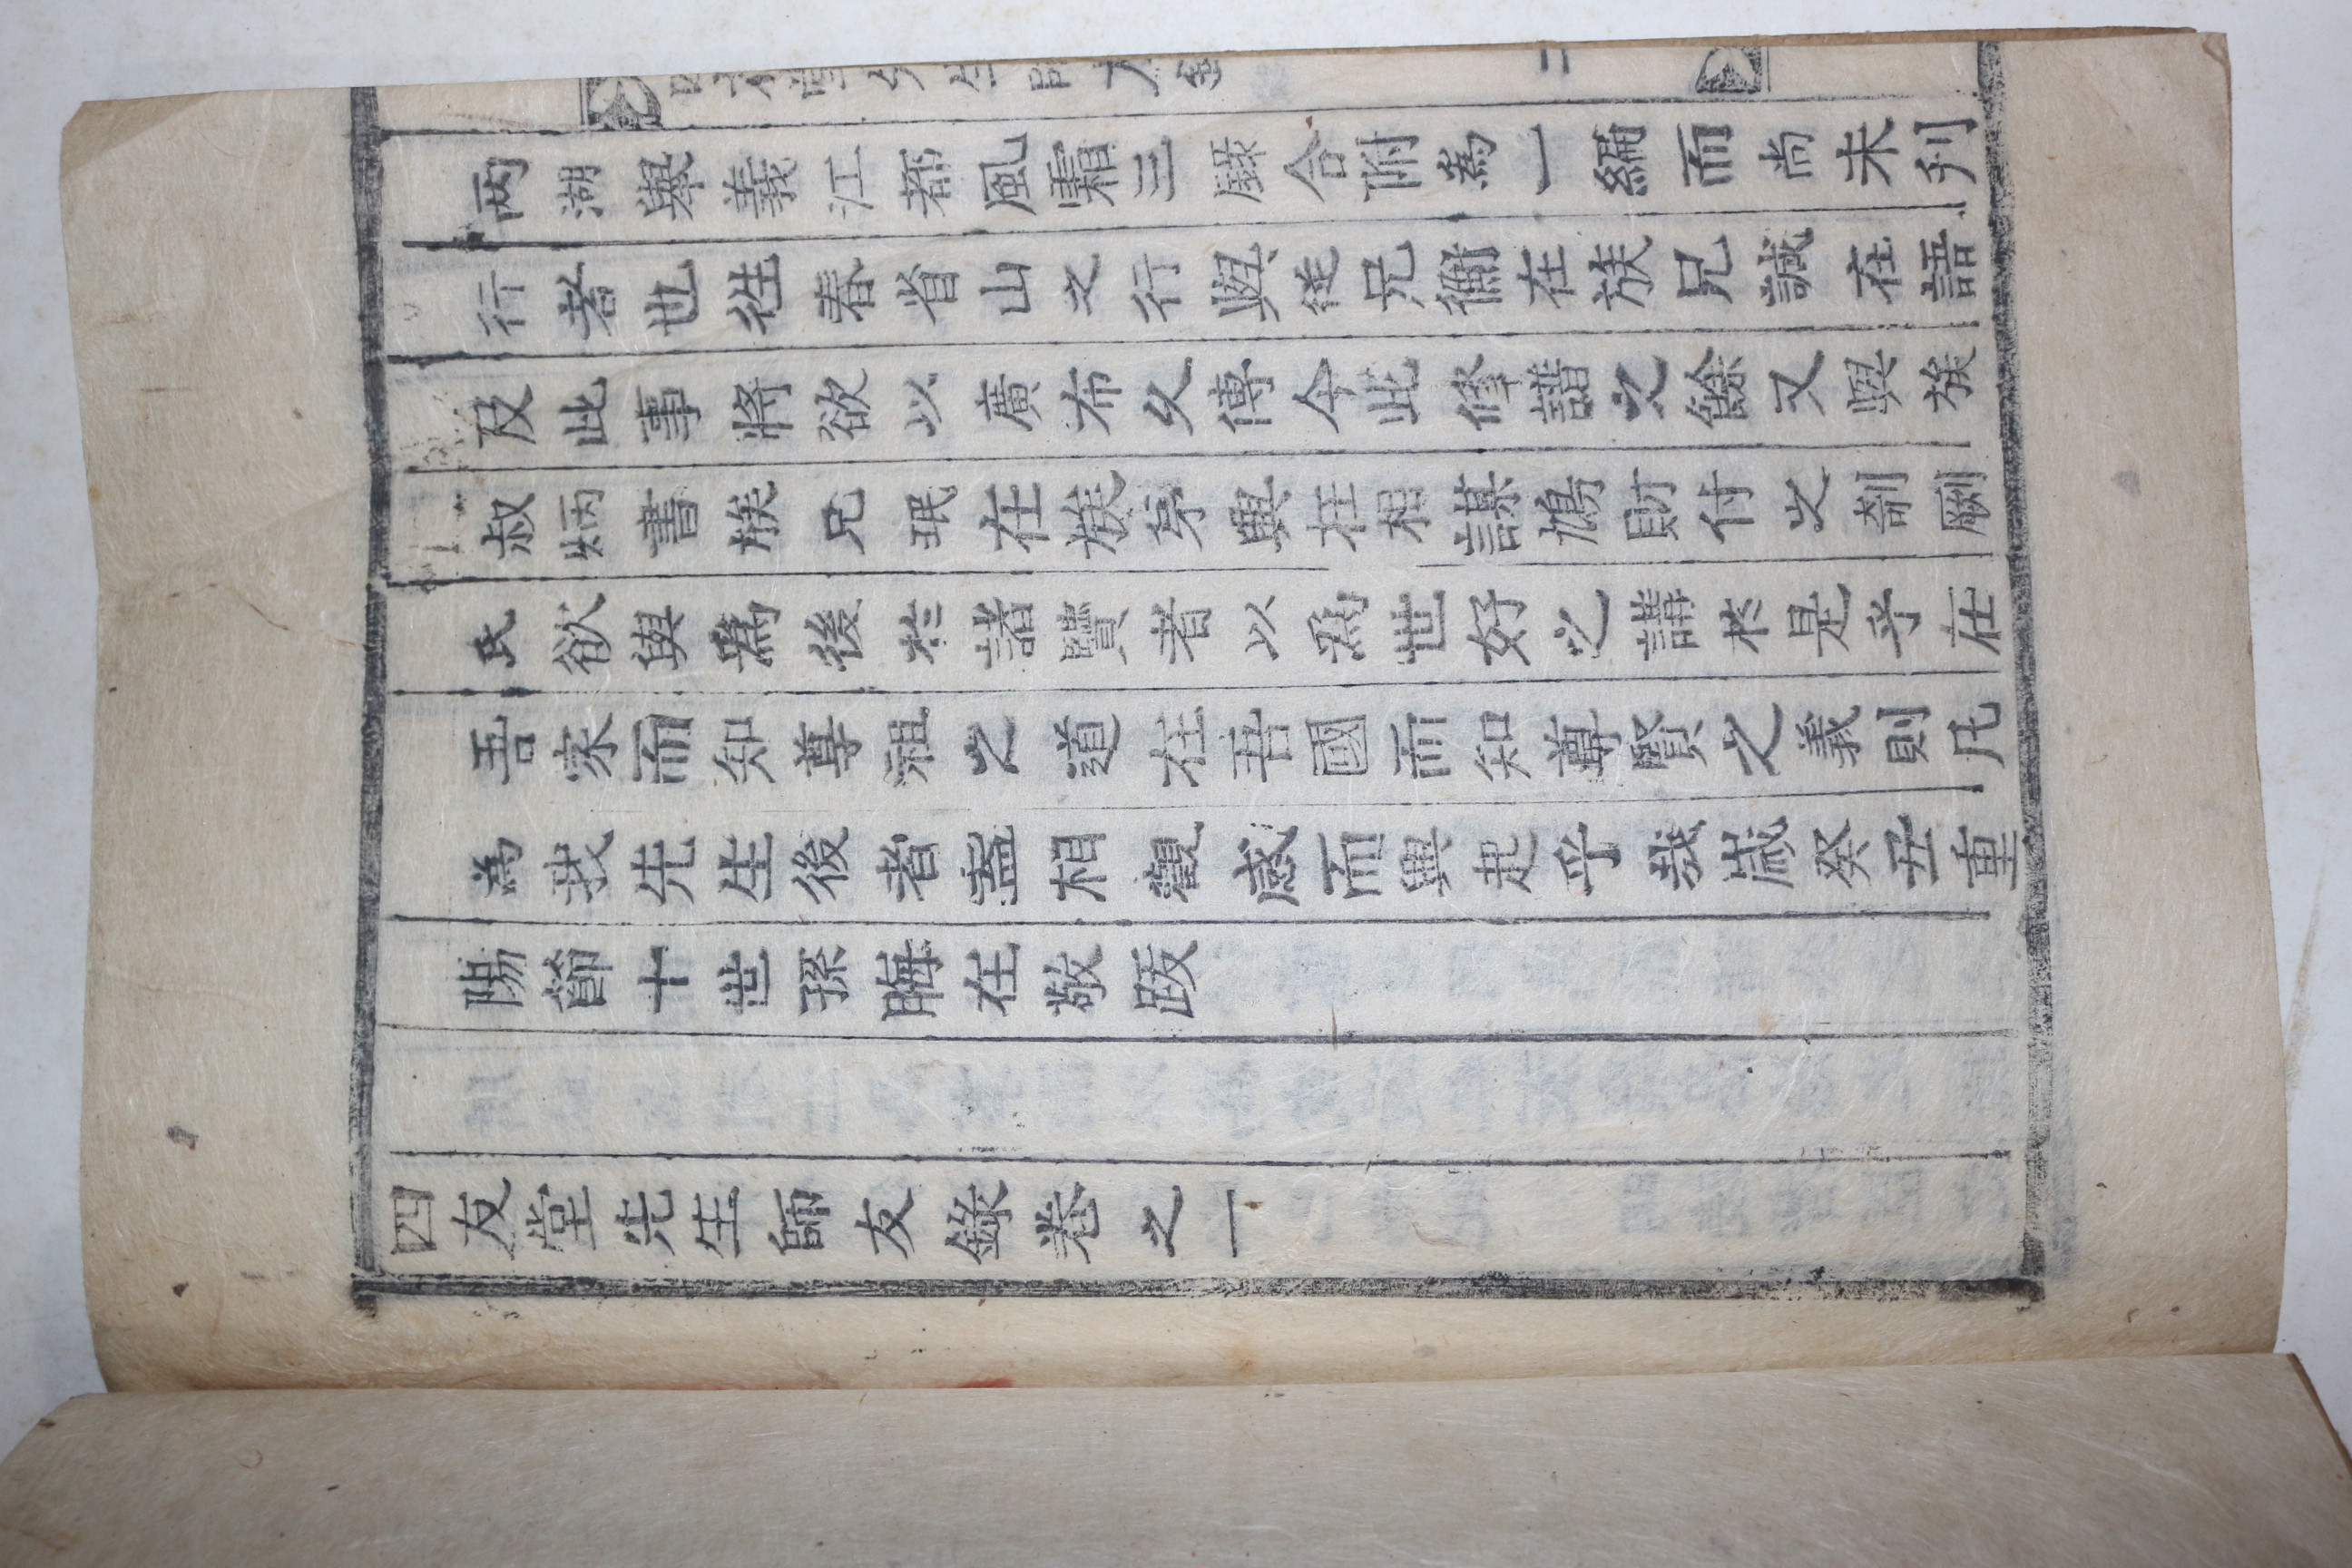 四友堂先生師友錄 二
兩湖舉義江都風霜三錄合附為一編而尚未刋
行者世徃春省山之行與從兄在族兄誠在語
及此事將欲以廣布久傳今此修譜之餘又與族
叔炳書族兄珉在族弟興在相謀鳩財付之剞劂
氏欲與爲後於諸賢者以爲世好之講於是乎在
吾家而知尊祖之道在吾國而知尊賢之義則凡
為我先生後者盍相觀感而興起乎哉歲癸丑重
陽節十世孫晦在敬跋
四友堂先生師友錄卷之一